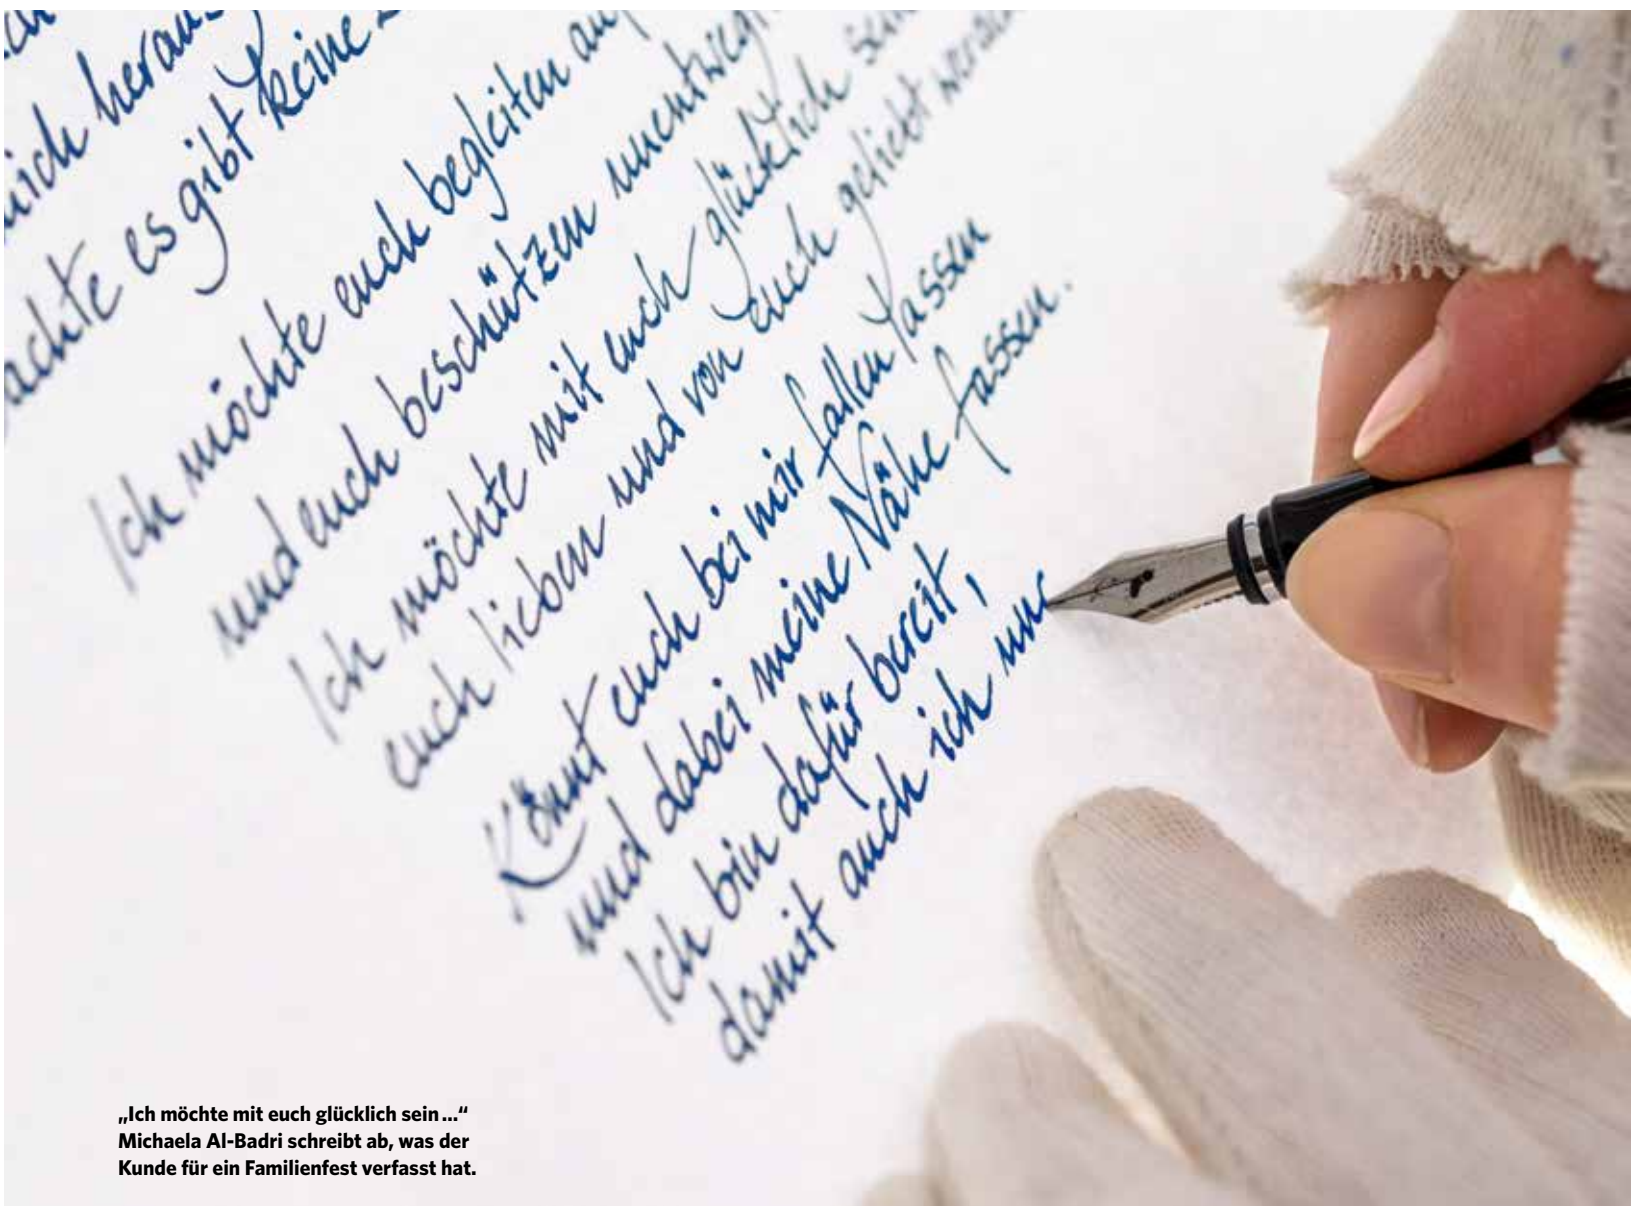 mich heraus
achte es gibt keine
Ich möchte euch begleiten auf
und euch beschützen unentwegt
Ich möchte mit euch glücklich sein
euch lieben und von euch geliebt werden
Könnt euch bei mir fallen lassen
und dabei meine Nähe fassen.
Ich bin dafür bereit,
damit auch ich nur
„Ich möchte mit euch glücklich sein ...“
Michaela Al-Badri schreibt ab, was der
Kunde für ein Familienfest verfasst hat.